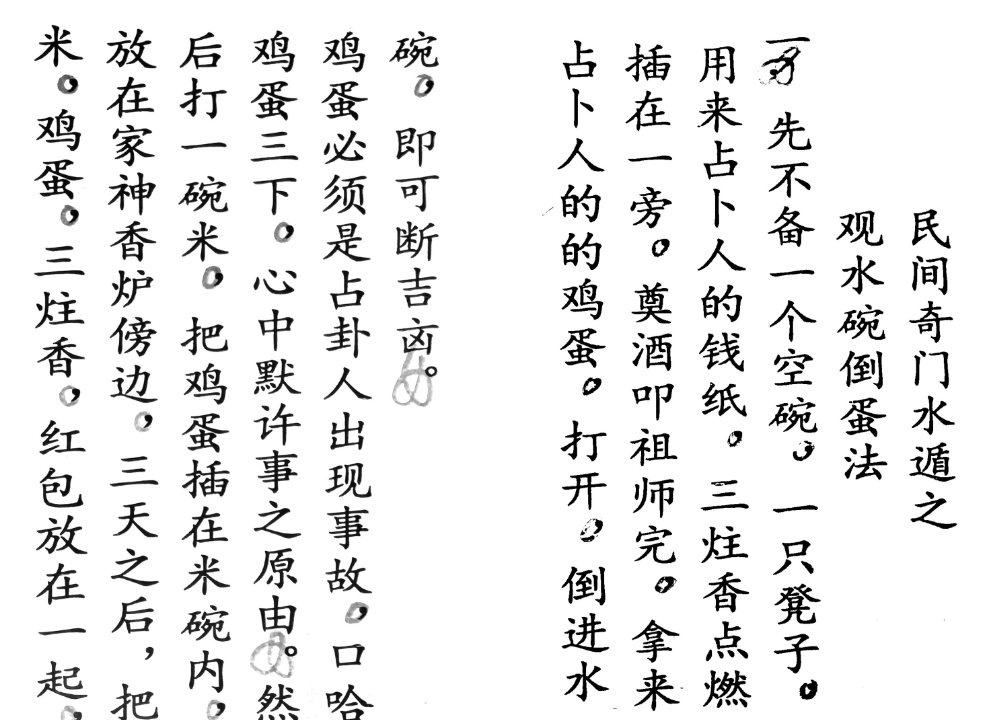 民间奇门水遁之
观水碗倒蛋法
先不备一个空碗。一只凳子。
用来占卜人的钱纸。三炷香点燃
插在一旁。奠酒叩祖师完。拿来
占卜人的的鸡蛋。打开。倒进水
碗。即可断吉凶。
鸡蛋必须是占卦人出现事故。口哈
鸡蛋三下。心中默许事之原由。然
后打一碗米。把鸡蛋插在米碗内。
放在家神香炉傍边。三天之后，把
米。鸡蛋。三炷香。红包放在一起。